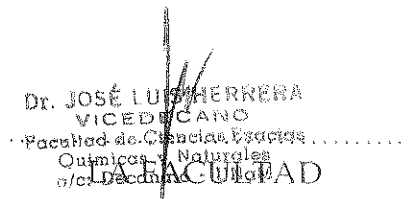 Dr. JOSÉ LUIS HERRERA
VICEDECANO
Facultad de Ciencias Exactas
Químicas y Naturales
a/c: Decanato - UNaM
LA FACULTAD